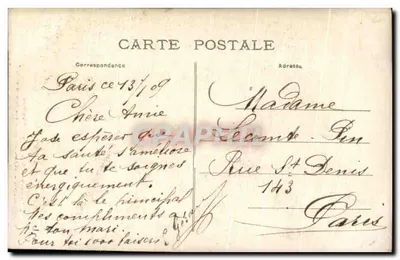 CARTE POSTALE
Correspondance
Adresse
Paris ce 13/1 09
Chère Amie
J'ose espérer que
ta santé s'améliore
et que tu te soignes
énergiquement.
C'est là le principal
Mes compliments à
ton mari.
Pour toi 1000 baisers
Madame
Lecomte-Pin
Rue St Denis
143
Paris